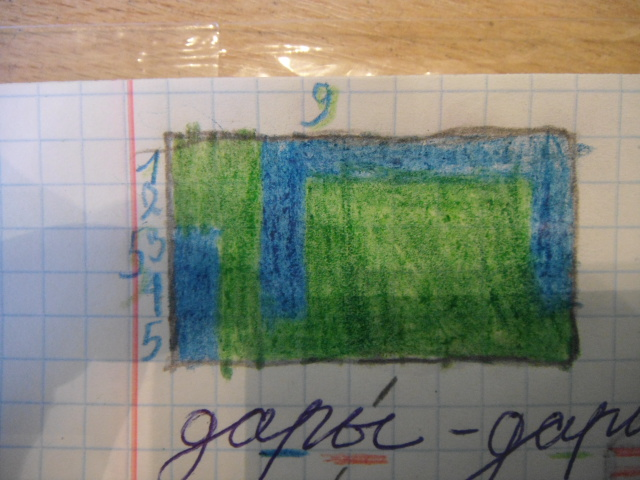 9
1
2
5 3
1
5
дары - дари